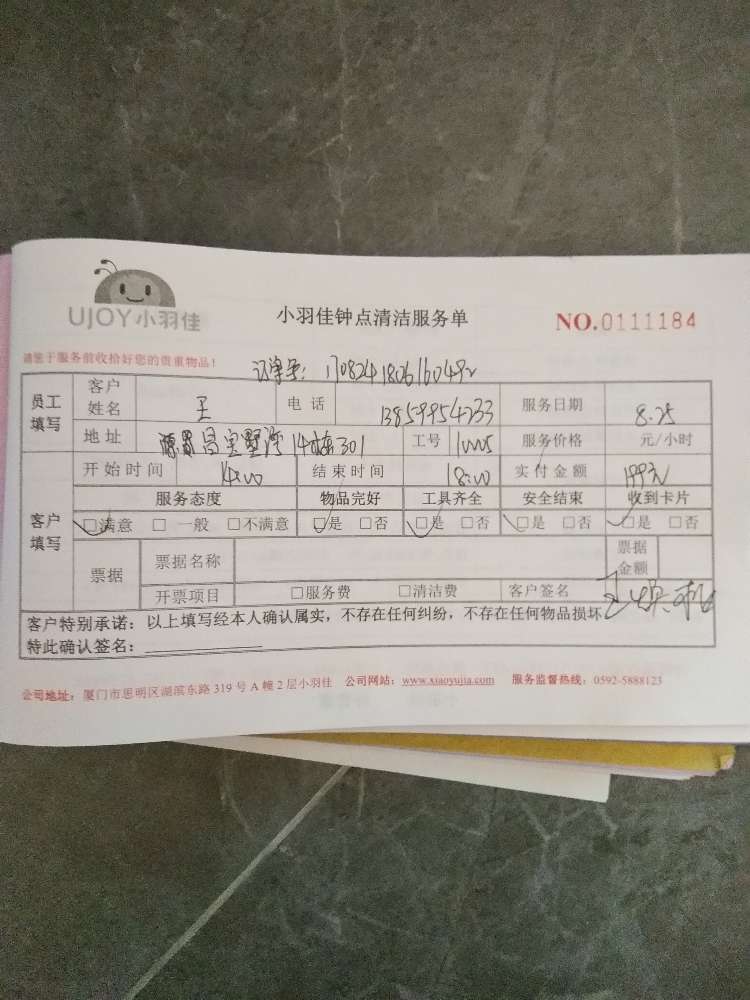 UJOY小羽佳
小羽佳钟点清洁服务单
NO.0111184
请您于服务前收拾好您的贵重物品!
订单号: 1708241806160492
员工填写 客户姓名 王 电话 13859954233 服务日期 8.25
地址 墅湾14栋301 工号 10005 服务价格 元/小时
客户填写 开始时间 14:00 结束时间 18:00 实付金额 199元
服务态度 物品完好 工具齐全 安全结束 收到卡片
□满意 □一般 □不满意 □是 □否 □是 □否 □是 □否 □是 □否
票据 票据名称 票据金额
开票项目 □服务费 □清洁费 客户签名
客户特别承诺:以上填写经本人确认属实,不存在任何纠纷,不存在任何物品损坏
特此确认签名:
公司地址:厦门市思明区湖滨东路 319 号 A 幢 2 层小羽佳 公司网站:www.xiaoyujia.com 服务监督热线:0592-5888123